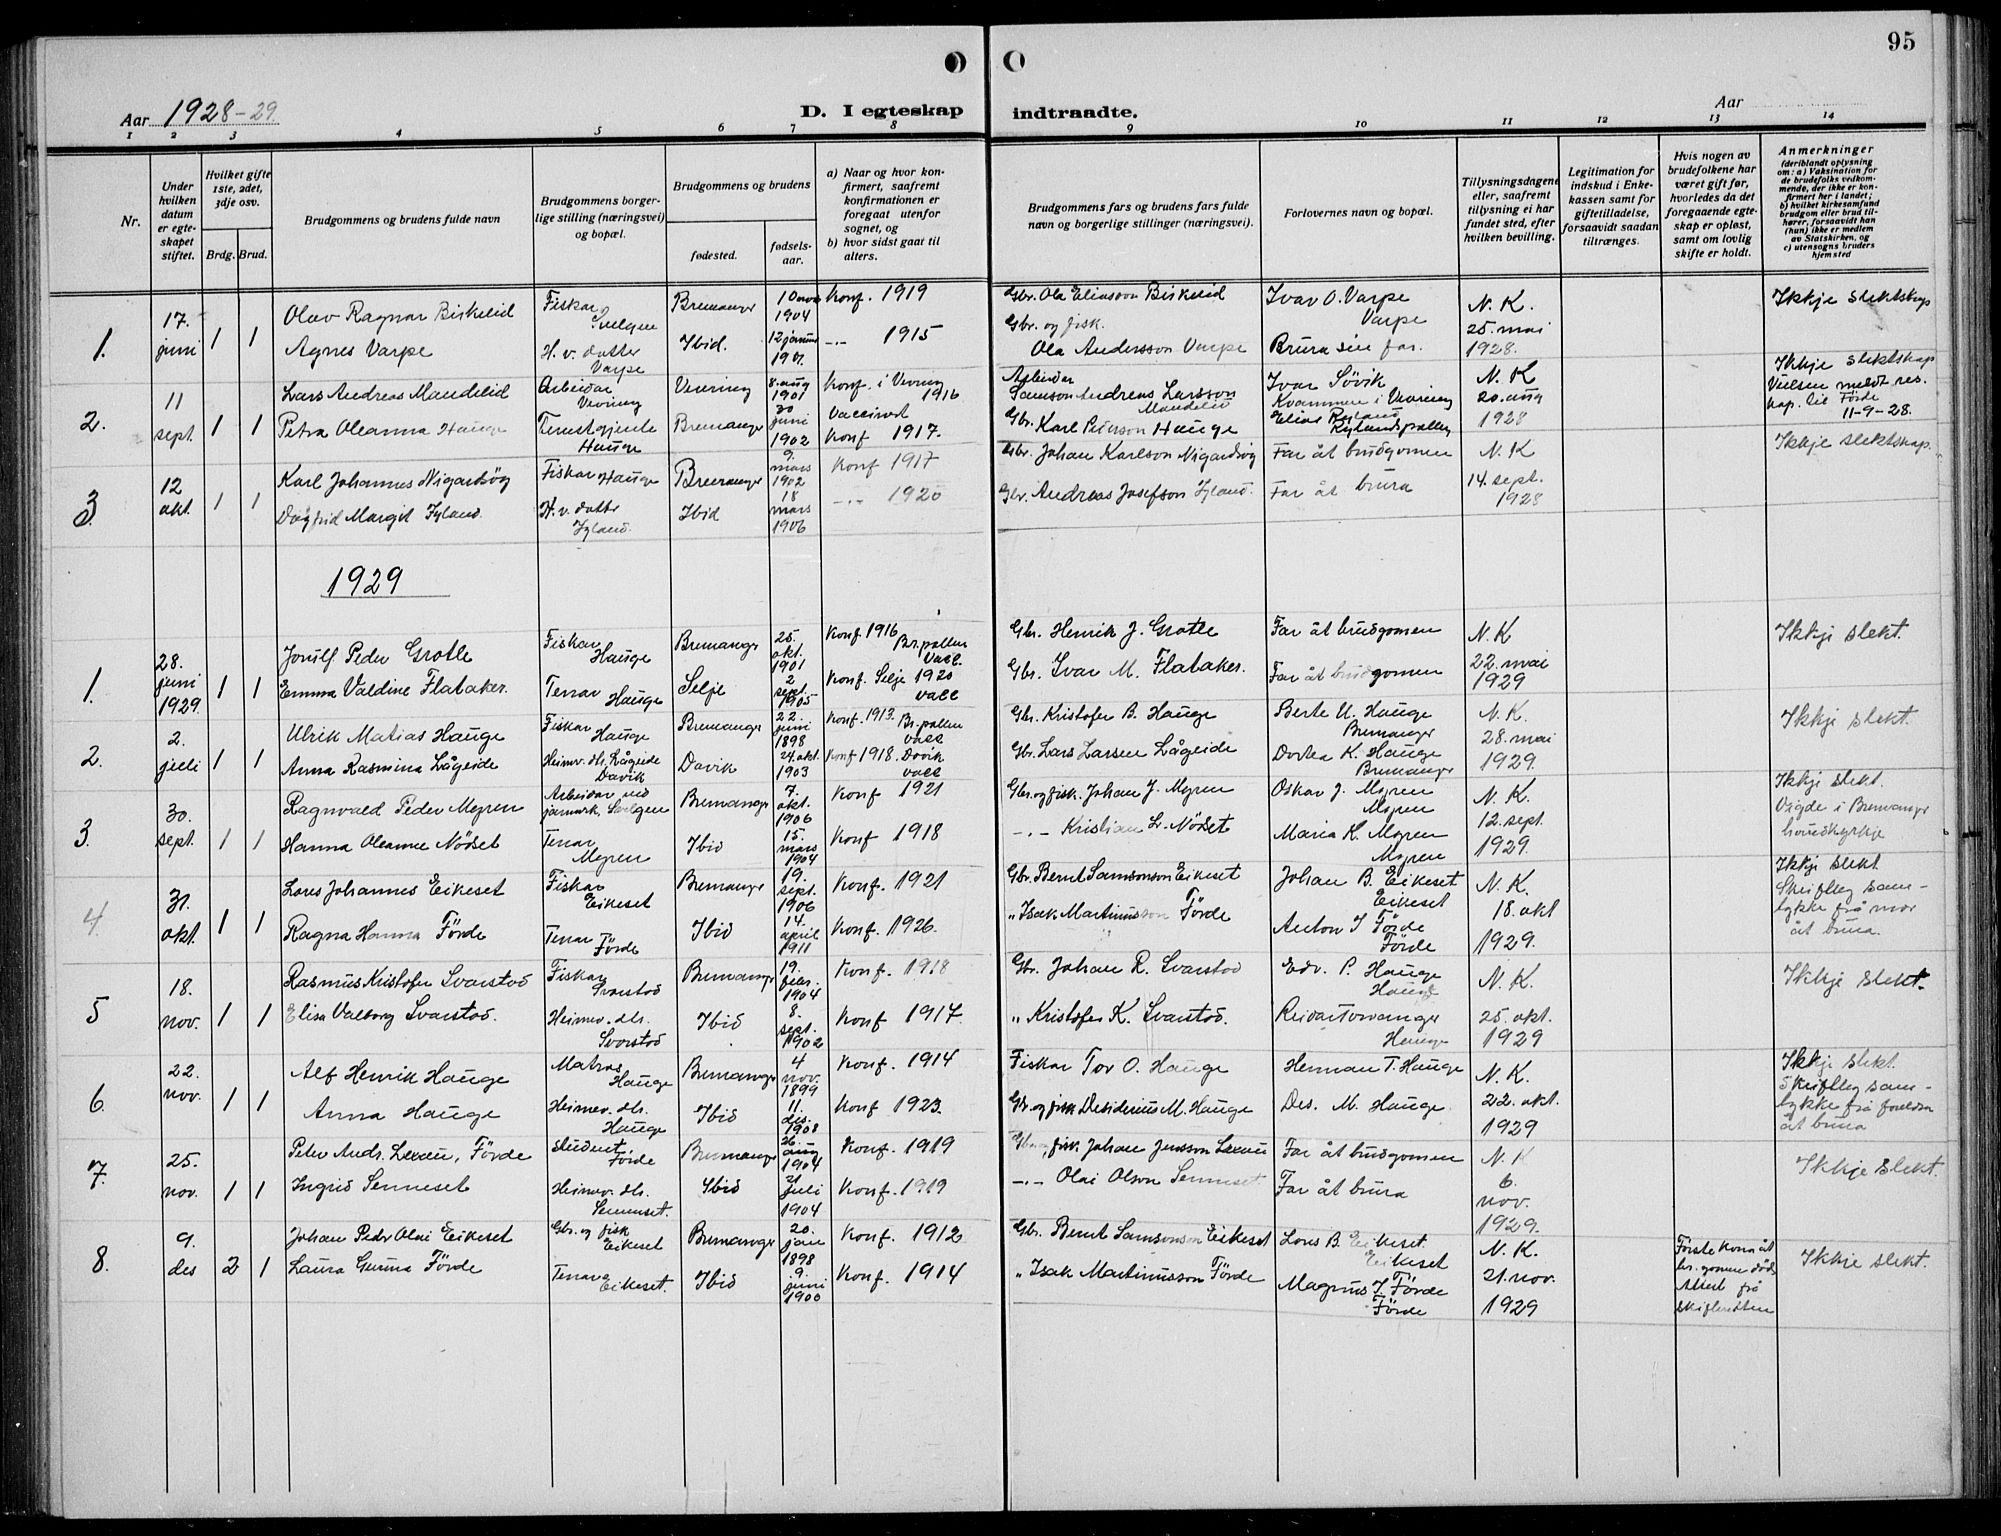 95
Aar 1928-29.
D. I egteskap indtraadte.
Aar
1 2 3 4 5 6 7 8 9 10 11 12 13 14
Nr.
Under hvilken datum er egteskapet stiftet.
Hvilket gifte 1ste, 2det, 3dje osv.
Brdg. Brud.
Brudgommens og brudens fulde navn
Brudgommens borgerlige stilling (næringsvei) og bopæl.
Brudgommens og brudens
fødested.
fødselsaar.
a) Naar og hvor konfirmert, saafremt konfirmationen er foregaat utenfor sognet, og
b) hvor sidst gaat til alters.
Brudgommens fars og brudens fars fulde navn og borgerlige stillinger (næringsvei).
Forlovernes navn og bopæl.
Tillysningsdagene eller, saafremt tillysning ei har fundet sted, efter hvilken bevilling.
Legitimation for indskud i Enkekassen samt for giftetilladelse, forsaavidt saadan tiltrænges.
Hvis nogen av brudefolkene har været gift før, hvorledes da det foregaaende egteskap er opløst, samt om lovlig skifte er holdt.
Anmerkninger (deriblandt oplysning om: a) Vaksination for de brudefolks vedkommende, der ikke er konfirmert her i landet; b) hvilket kirkesamfund brudgom eller brud tilhører, forsaavidt han (hun) ikke er medlem av Statskirken, og c) utensogns bruders hjemsted
1. 17. juni 1 1
Olav Ragnar Birkelid Fiskar Svelgen Bremanger 10 nov 1904 Konf. 1919 Gbr. Ola Eliasson Birkelid Ivar O. Varpe Varpe N. K. 25. mai 1928. Ikkje slektskap
Agnes Varpe H. v. datter Varpe Ibid. 12 januar -"- 1915 Gbr. og fisk. Ola Andersson Varpe Brura sin far.
2. 11 sept. 1 1
Lars Andreas Mandelid Arbeidar Vevring Vevring 8. aug 1901 Konf. i Vevring 1916 Arbeider Samson Andreas Larsson Mandelid Ivar Sövik Kvammen i Vevring N. K 20. aug 1928 Ikkje slektskap Vielsen meldt res. kap. til Förde 11-9-28.
Petra Oleanna Hauge Tenestgjente Hauge Bremanger 30 juni 1902 Vaccinert Konf 1917. Gbr. Karl Peterson Hauge Elias Rylands
3. 12 okt. 1 1
Karl Johannes Nigardsög Fiskar Hauge Bremanger 9. mars 1902 Konf 1917 Gbr. Johan Karlson Nigardsög Far åt brudgomen N. K 14. sept. 1928 Ikkje slektskap.
Dagfrid Margit Iglands H. v. datter Iglands Ibid 18 mars 1906 -"- 1920 Gbr. Andreas Josefson Iglands. Far åt brura
1929
1. 28. juni 1929. 1 1
Jonulf Peder Grotle Fiskar Hauge Bremanger 25. okt. 1901 Konf 1916 Br.pollen Vacc. Gbr. Henrik J. Grotle Far åt brudgomen N. K 22. mai 1929 Ikkje slekt.
Emma Valdine Flataker. Tenar Hauge Selje 2 sept. 1905 Konf. Selje 1920 vacc Gbr. Ivar M. Flataker. Far åt brudgomen
2. 2. juli 1 1
Ulrik Matias Hauge Fiskar Hauge Bremanger 22 juni 1898 Konf. 1913. Br.pollen vacc Gbr. Kristofer B. Hauge Berte U. Hauge Bremanger N. K. 28. mai 1929. Ikkje slekt.
Anna Rasmina Lågeide Heimev. dtr. Lågeide Davik Davik 24. okt. 1903 Konf 1918. Davik vacc Gbr. Lars Larsen Lågeide Dortea K. Hauge Bremanger
3. 30. sept. 1 1
Ragnvald Peder Myren Arbeidar ved jarnverk, Svelgen Bremanger 7. okt. 1906 Konf 1921 Gbr. og fisk. Johan J. Myren Oskar J. Myren Myren N. K. 12. sept. 1929. Ikkje slekt. Vigde i Bremanger hovudkyrkje
Hanna Oleanne Nödset Tenar Myren Ibid 15. mars 1904 Konf 1918 -"- Kristian L. Nödset Maria K. Myren Myren
4 31. okt. 1 1
Lars Johannes Eikeset Fiskar Eikeset Bremanger 19. sept. 1906 Konf. 1921 Gbr. Bernt Samsonson Eikeset Johan B. Eikeset Eikeset N. K. 18. okt 1929. Ikkje slekt Skriftleg samtykke frå mor åt brura.
Ragna Hanna Förde Tenar Förde Ibid 14. april 1911 Konf. 1926. " Isak Martinusson Förde Anton I Förde Förde
5 18. nov. 1 1
Rasmus Kristofer Svarstad Fiskar Svarstad Bremanger 19. febr. 1904 Konf. 1918 Gbr. Johan R. Svarstad Edv. P. Hauge Hauge N. K. 25. okt. 1929 Ikkje slekt.
Elisa Valborg Svarstad. Heimev. dtr. Svarstad Ibid 8. sept. 1902 Konf 1917. " Kristofer K. Svarstad. Hauge
6. 22. nov. 1 1
Alf Henrik Hauge Matros Hauge Bremanger 4 nov. 1899 Konf. 1914 Fiskar Tor O. Hauge Herman T. Hauge N. K. 22. okt. 1929 Ikkje slekt. Skriftleg samtykke frå foreldra åt brura
Anna Hauge Heimev. dtr. Hauge Ibid 11. des. 1908 Konf 1923. Gbr og fisk Desiderius M. Hauge Des. M. Hauge
7. 25. nov. 1 1
Peter Andr. Lexau, Förde student Förde Bremanger 26. aug 1904 Konf. 1919 Gbr og fisk Johan Jensson Lexau Far åt brudgomen N. K 6. nov. 1929. Ikkje slekt
Ingrid Senneset Heimev. dtr. Senneset. Ibid 21 juli 1904 Konf. 1919 -"- Olai Olson Senneset Far åt brura
8. 9. des 2 1
Johan Peder Olai Eikeset Gbr. og fisk Eikeset Bremanger 20. jan 1898 Konf. 1912 Gbr. Bernt Samsonson Eikeset Lars B. Eikeset. Eikeset N. K. 21. nov. 1929 Förste kona åt br.gomen död. Attest frå skifteretten Ikkje slekt.
Laura Gurina Förde Tenar Eikeset. Ibid 9. juni 1900 Konf. 1914 " Isak Martinusson Förde Magnus I. Förde Förde